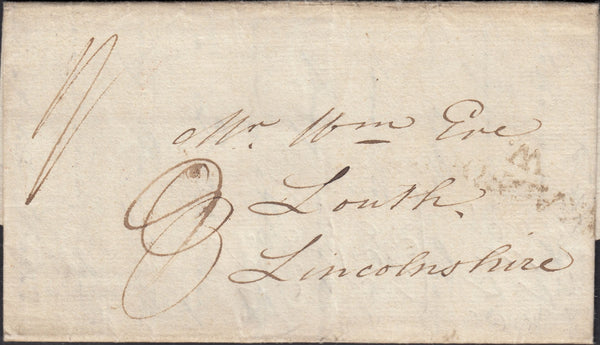 Mr. Wm Eve
Louth,
8
Lincolnshire